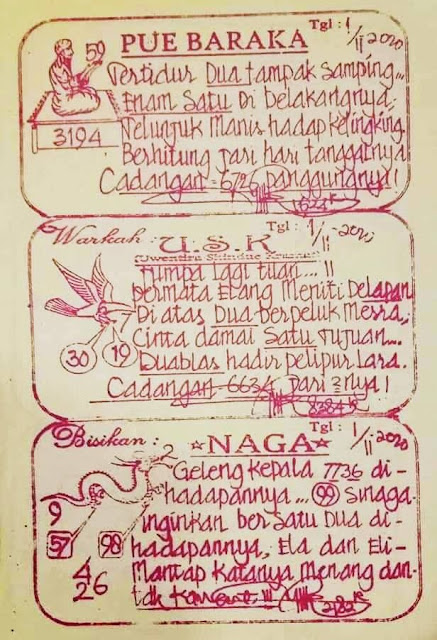 59
3194
PUE BARAKA
Tgl : 1/II-2020
Tertidur Dua tampak samping...
Enam Satu Di belakangnya,
Telunjuk Manis hadap kelingking
Berhitung jari hari tanggalnya
Cadangan = 672 panggungnya!
Warkah :
U.S.K
Tgl : 1/II-2020
Jumpa lagi tuan... !!
permata Elang Meniti Delapan
Di atas Dua berpeluk Mesra,
Cinta damai Satu tujuan...
Duablas hadir pelipur Lara.
Cadangan 6634 pari 3nya!
8284
30
19
Bisikan :
☆NAGA☆
Tgl : 1/II-2020
2
9
57
98
4
26
Geleng kepala 7736 di-
hadapannya... 99 Sinaga
inginkan ber Satu Dua di-
hadapannya, Ela dan Eli-
Mantap Katanya Menang dan-
tdk
2182